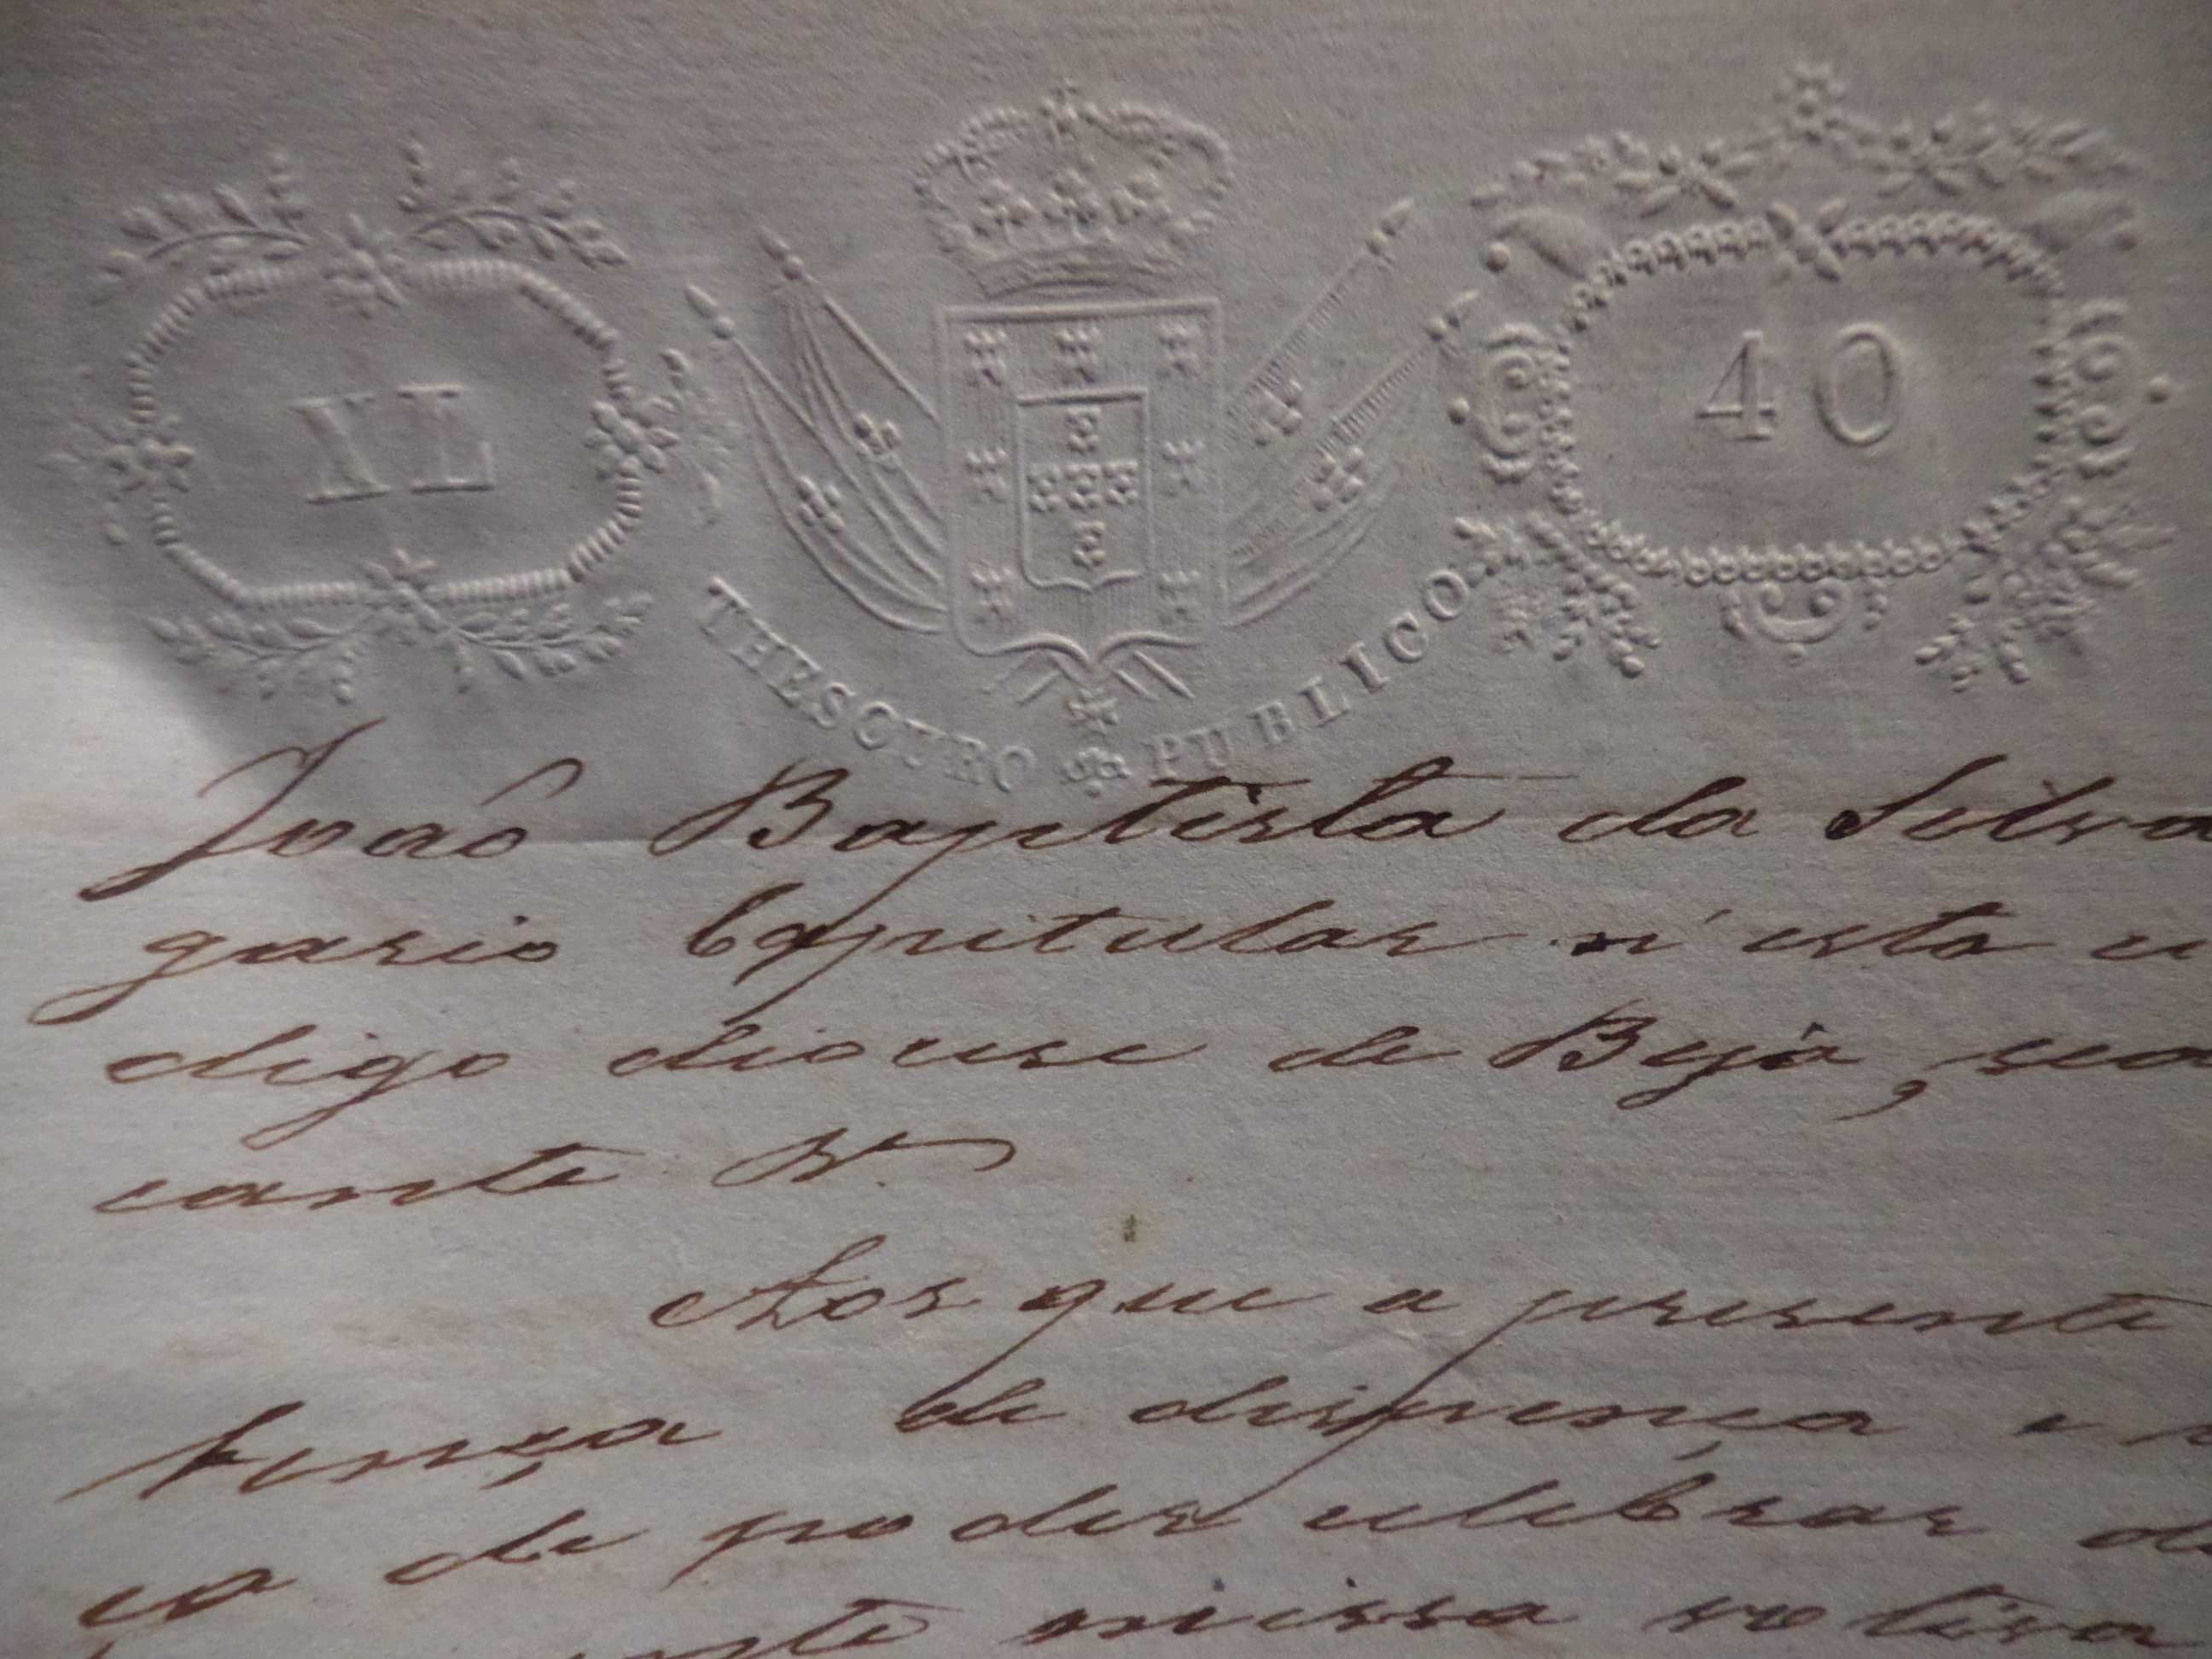 XL
40
THESOURO PUBLICO
João Baptista da Silva
gario Capitular n'esta
digo diocese de Beja,
cante &.
Aos que a presente
tença de dispença
co de poder celebrar
missa votiva